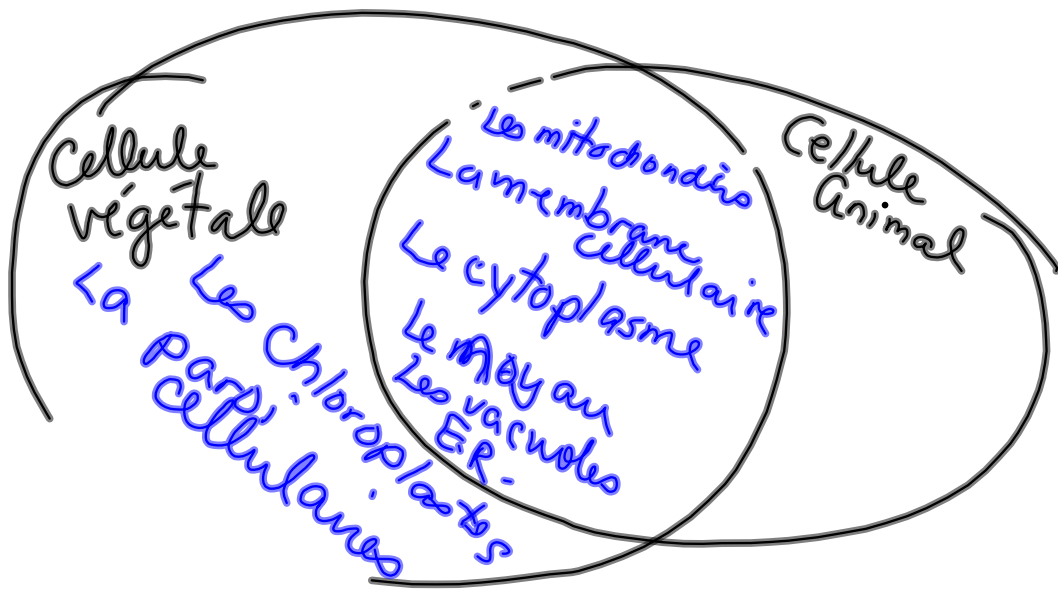 Cellule
végétale
La
parpi
cellulaires
Les
Chloroplastes
Les mitochondris
La membrane
cellulaire
Le cytoplasme
Le noyau
Les vacuoles
E.R.
Cellule
Animal